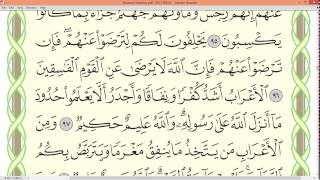 عَنْهُمْ إِنَّهُمْ رِجْسٌ وَمَأْوَىٰهُمْ جَهَنَّمُ جَزَآءًۢ بِمَا كَانُوا۟
يَكْسِبُونَ ٩٥ يَحْلِفُونَ لَكُمْ لِتَرْضَوْا۟ عَنْهُمْ ۖ فَإِن
تَرْضَوْا۟ عَنْهُمْ فَإِنَّ ٱللَّهَ لَا يَرْضَىٰ عَنِ ٱلْقَوْمِ ٱلْفَٰسِقِينَ
٩٦ ٱلْأَعْرَابُ أَشَدُّ كُفْرًا وَنِفَاقًا وَأَجْدَرُ أَلَّا يَعْلَمُوا۟ حُدُودَ
مَآ أَنزَلَ ٱللَّهُ عَلَىٰ رَسُولِهِۦ ۗ وَٱللَّهُ عَلِيمٌ حَكِيمٌ ٩٧ وَمِنَ
ٱلْأَعْرَابِ مَن يَتَّخِذُ مَا يُنفِقُ مَغْرَمًا وَيَتَرَبَّصُ بِكُمُ